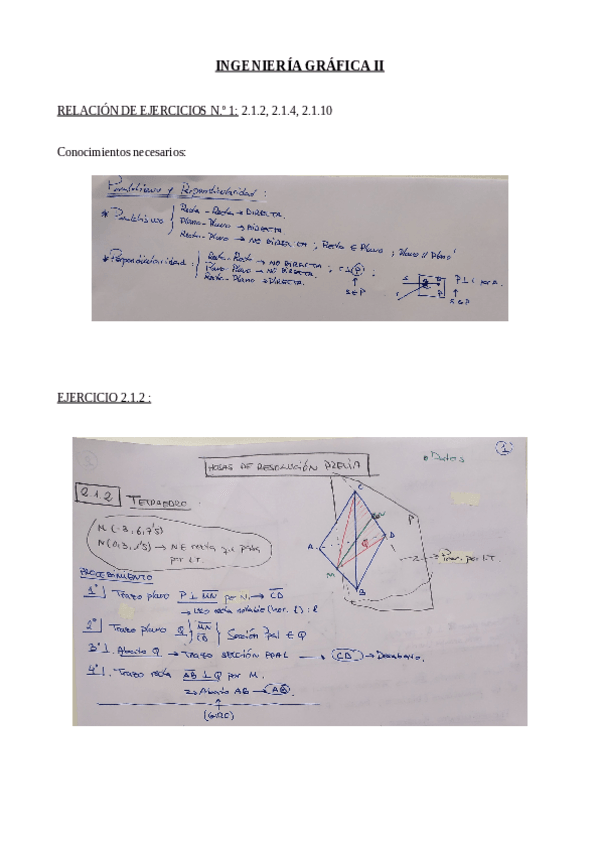 INGENIERÍA GRÁFICA II
RELACIÓN DE EJERCICIOS N.º 1: 2.1.2, 2.1.4, 2.1.10
Conocimientos necesarios:
Paralelismo y Perpendicularidad:
* Paralelismo
Recta - Recta → DIRECTA.
Plano - Plano → DIRECTA
Recta - Plano → NO DIRECTA ; Recta ∈ Plano ; Plano // Plano'
* Perpendicularidad:
Recta - Recta → NO DIRECTA
Plano - Plano → NO DIRECTA.
Recta - Plano → DIRECTA.
S∈P
EJERCICIO 2.1.2 :
1
HOJAS DE RESOLUCIÓN
Datos
2.1.2 TETRAEDRO
M (-3, 6, 7'5)
N (0, 3, 1'5) →
pr LT.
C
P
N
A
D
Q
M
B
por LT.
PROCEDIMIENTO
1º Trazo plano P ⊥ MN por N → CD
2º Trazo plano Q MN CD Sección ∈ Q
3º Abato Q → TRAZO SECCIÓN PPAL → CD → Desabato.
4º Trazo recta AB ⊥ Q por M.
Abato AB → AB
(GIRO)